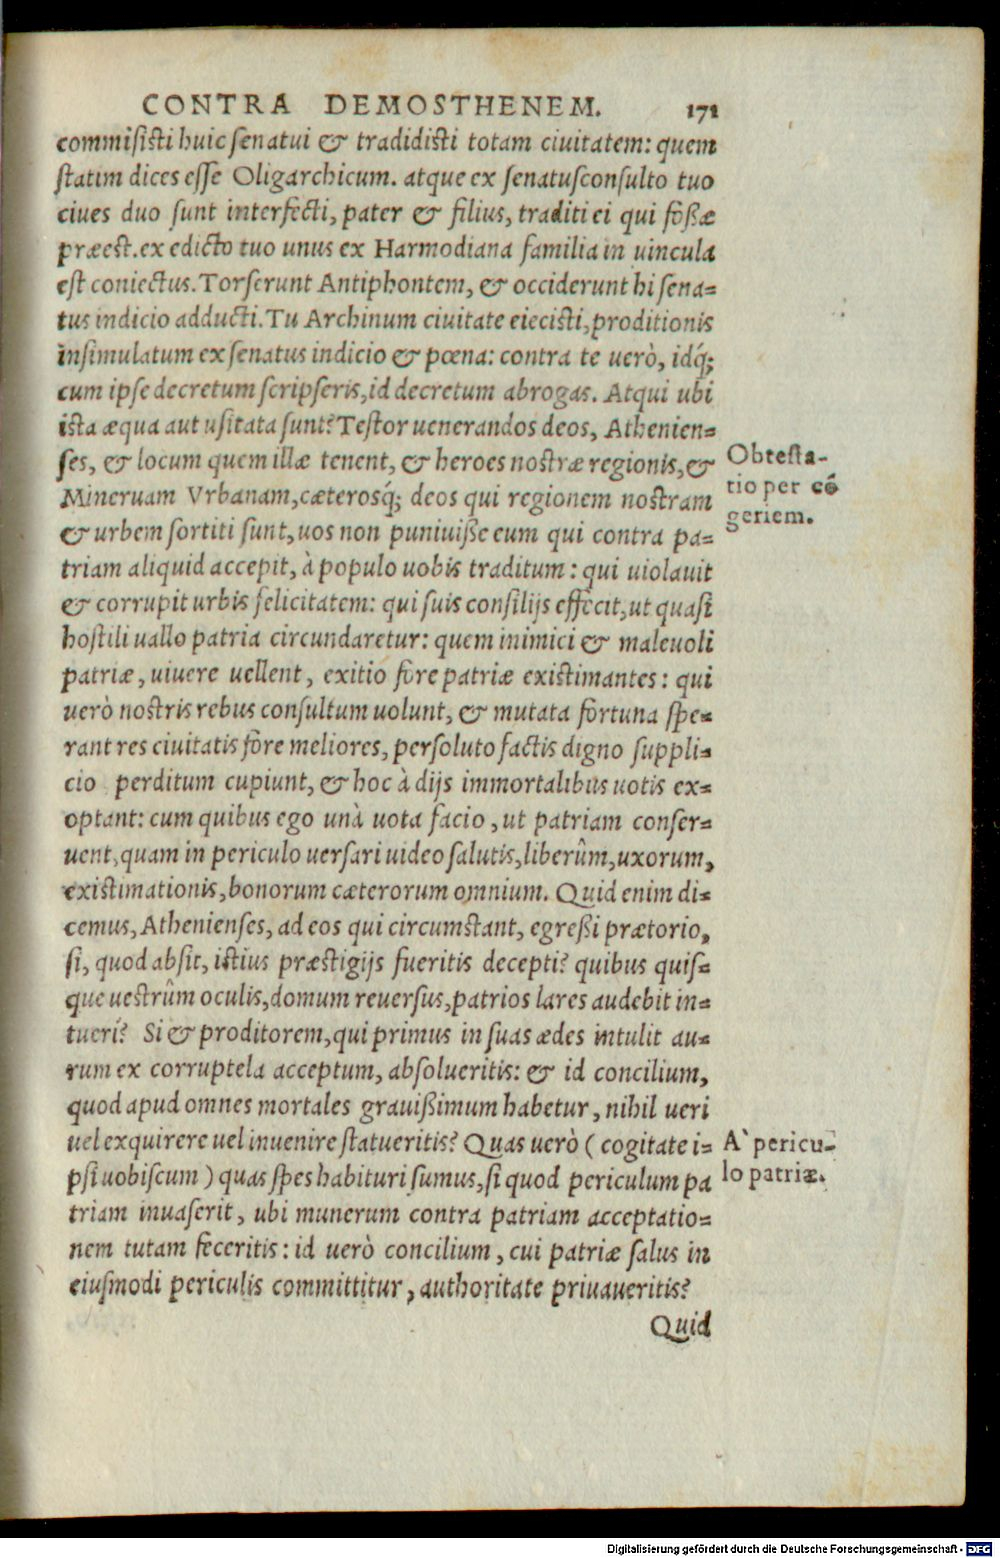 CONTRA DEMOSTHENEM. 171
commisisti huic senatui & tradidisti totam ciuitatem: quem
statim dices esse Oligarchicum. atque ex senatusconsulto tuo
ciues duo sunt interfecti, pater & filius, traditi ei qui foßæ
præest. ex edicto tuo unus ex Harmodiana familia in uincula
est coniectus. Torserunt Antiphontem, & occiderunt hi sena=
tus indicio adducti. Tu Archinum ciuitate eiecisti, proditionis
insimulatum ex senatus indicio & pœna: contra te uerò, idq́;
cum ipse decretum scripseris, id decretum abrogas. Atqui ubi
ista æqua aut usitata sunt? Testor uenerandos deos, Athenien=
ses, & locum quem illæ tenent, & heroes nostræ regionis, &
Obtesta-
tio per cō
geriem.
Mineruam Vrbanam, cæterosq́; deos qui regionem nostram
& urbem sortiti sunt, uos non puniuiße eum qui contra pa=
triam aliquid accepit, à populo uobis traditum: qui uiolauit
& corrupit urbis felicitatem: qui suis consilijs effecit, ut quasi
hostili uallo patria circundaretur: quem inimici & maleuoli
patriæ, uiuere uellent, exitio fore patriæ existimantes: qui
uerò nostris rebus consultum uolunt, & mutata fortuna spe=
rant res ciuitatis fore meliores, persoluto factis digno suppli=
cio perditum cupiunt, & hoc à dijs immortalibus uotis ex=
optant: cum quibus ego unà uota facio, ut patriam conser=
uent, quam in periculo uersari uideo salutis, liberûm, uxorum,
existimationis, bonorum cæterorum omnium. Quid enim di=
cemus, Athenienses, ad eos qui circumstant, egreßi prætorio,
si, quod absit, istius præstigijs fueritis decepti? quibus quis=
que uestrûm oculis, domum reuersus, patrios lares audebit in=
tueri? Si & proditorem, qui primus in suas ædes intulit au=
rum ex corruptela acceptum, absolueritis: & id concilium,
quod apud omnes mortales grauißimum habetur, nihil ueri
uel exquirere uel inuenire statueritis? Quas uerò (cogitate i=
A` pericu-
lo patriæ.
psi uobiscum) quas spes habituri sumus, si quod periculum pa
triam inuaserit, ubi munerum contra patriam acceptatio=
nem tutam feceritis: id uerò concilium, cui patriæ salus in
eiusmodi periculis committitur, authoritate priuaueritis?
Quid
Digitalisierung gefördert durch die Deutsche Forschungsgemeinschaft - DFG